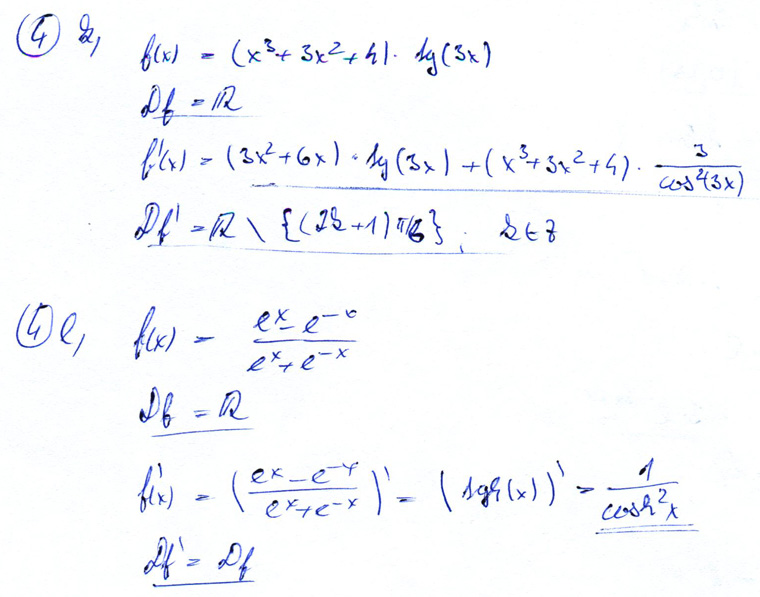 ④ k, f(x) = (x³ + 3x² + 4) · tg(3x)
Df = ℝ
f'(x) = (3x² + 6x) · tg(3x) + (x³ + 3x² + 4) · 3/cos²(3x)
Df' = ℝ \ {(2k+1) π/6}, k ∈ Z
④ l, f(x) = (eˣ - e⁻ˣ)/(eˣ + e⁻ˣ)
Df = ℝ
f'(x) = ((eˣ - e⁻ˣ)/(eˣ + e⁻ˣ))' = (tgh(x))' = 1/cosh²x
Df' = Df